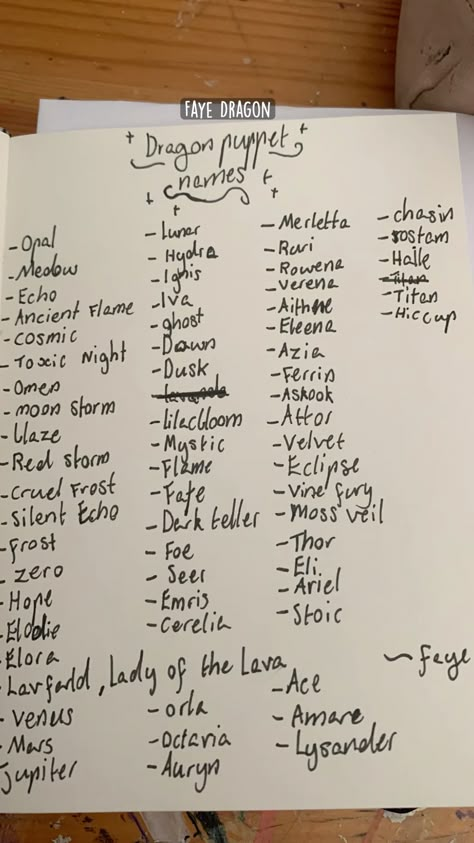 FAYE DRAGON
Dragon puppet
names
- Opal
- Meadow
- Echo
- Ancient Flame
- cosmic
- Toxic Night
- Omen
- moon storm
- blaze
- Red storm
- Cruel Frost
- Silent Echo
- frost
- zero
- Hope
- Elodie
- Elora
- Lavfarld, Lady of the Lava
- venus
- Mars
Jupiter
- Lunar
- Hydra
- Ignis
- Iva
- ghost
- Dawn
- Dusk
- lilacbloom
- Mystic
- Flame
- Fate
- Dark teller
- Foe
- Seer
- Emris
- Cerelia
- orla
- Octavia
- Auryn
- Merletta
- Ruri
- Rowena
- Verena
- Aithne
- Eleena
- Azia
- Ferrin
- Askook
- Attor
- Velvet
- Eclipse
- Vine fury
- Moss veil
- Thor
- Eli
- Ariel
- Stoic
- Ace
- Amare
- Lysander
- chasin
- rostam
- Halle
- Titan
- Titan
- Hiccup
~ faye